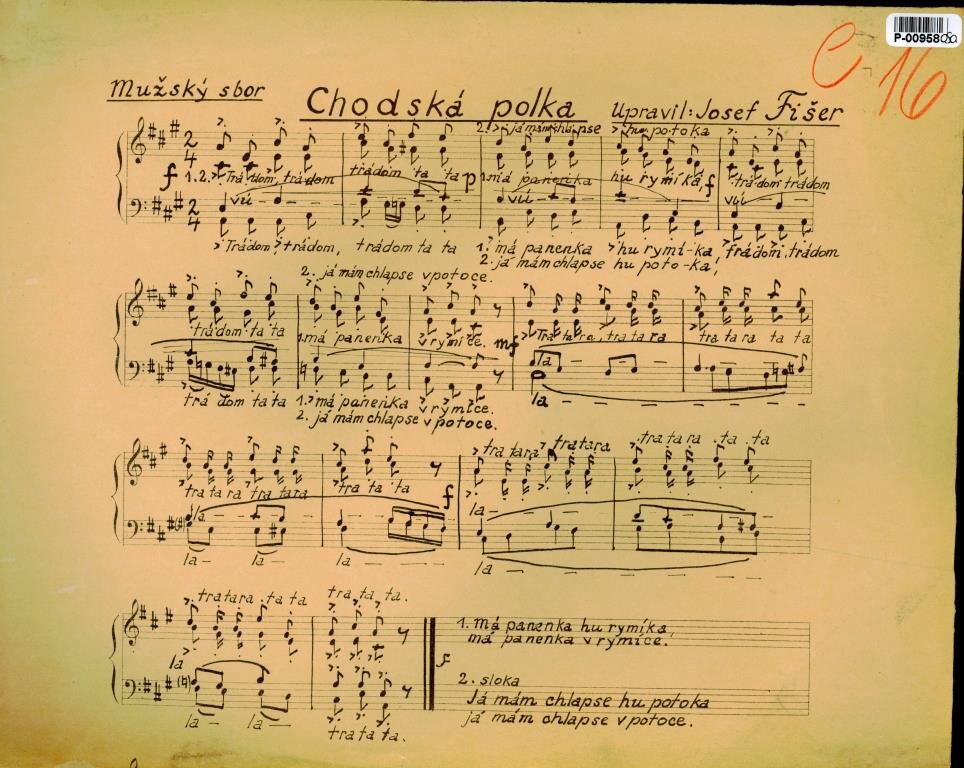 P-00958
C-16
Mužský sbor
Chodská polka
Upravil: Josef Fišer
2. já mám chlapse hu potoka
f 1.2. Trá dom, trá dom trádom ta ta p 1. má panenka hu rymíká, f trá dom trádom
vú vú vú
Trádom, trádom, trádom ta ta 1. má panenka hu rymí-ka, trádom, trádom
2. já mám chlapse hu poto-ka,
2. já mám chlapse v potoce.
trádom ta ta 1. má panenka v rymíce. mf Tra ta ra, tra ta ra tra ta ra ta ta
la
trá dom ta ta 1. má panenka v rymíce. la
2. já mám chlapse v potoce.
tra tara tra tara ta ta
tra ta ra tra ta ra tra ta ta f la
la
la la la la
tra tara ta ta tra ta ta.
la
la la tra ta ta.
1. Má panenka hu rymíka,
má panenka v rymíce.
2. sloka
Já mám chlapse hu potoka
já mám chlapse v potoce.